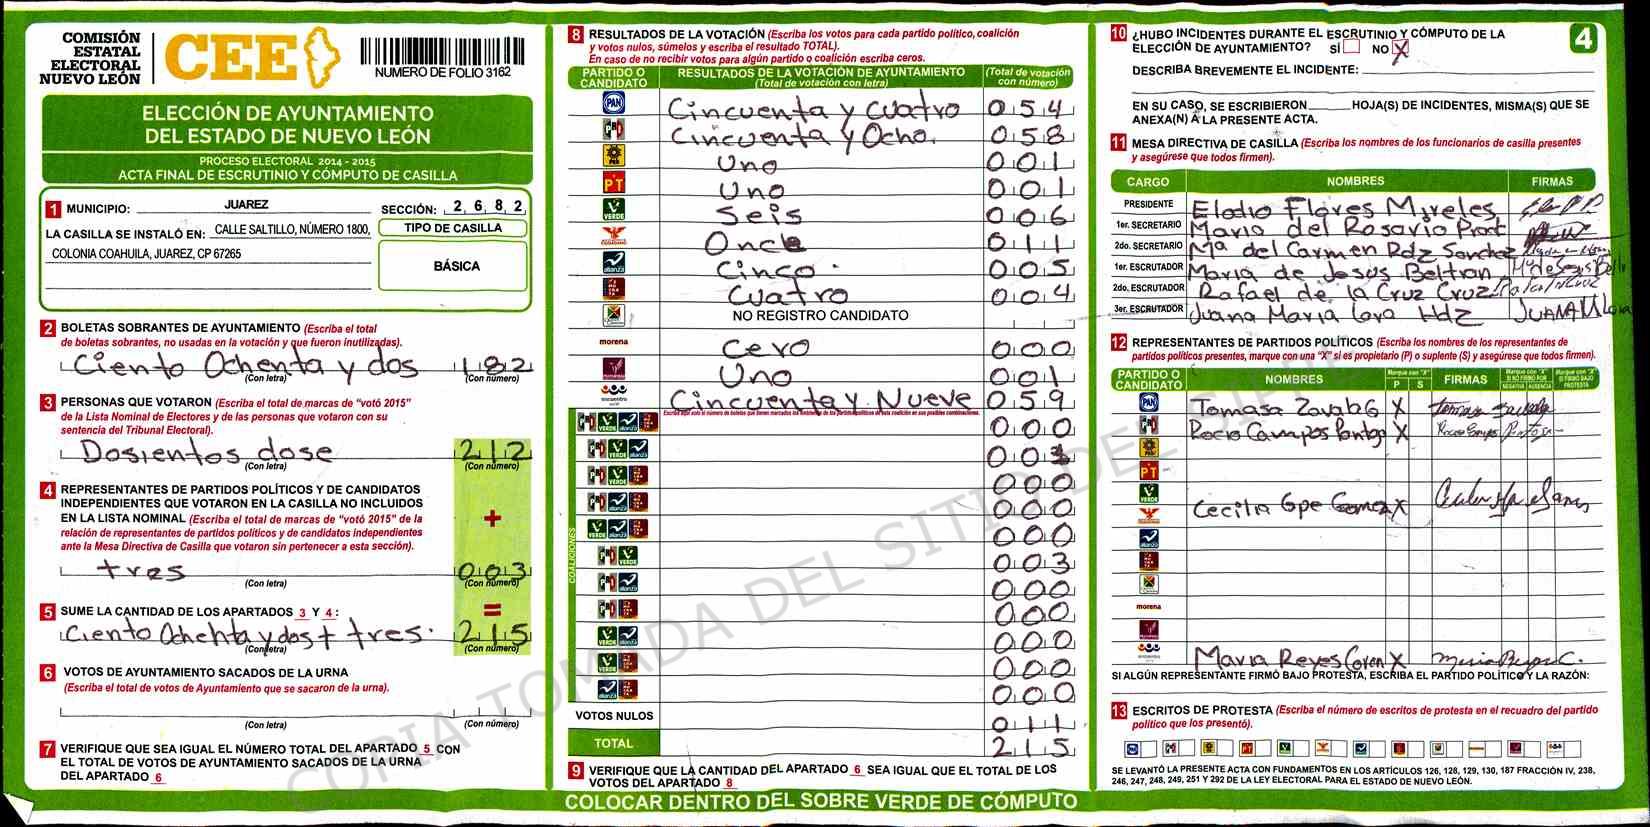 COMISIÓN
ESTATAL
ELECTORAL
NUEVO LEÓN
CEE
NUMERO DE FOLIO 3162
ELECCIÓN DE AYUNTAMIENTO
DEL ESTADO DE NUEVO LEÓN
PROCESO ELECTORAL 2014 - 2015
ACTA FINAL DE ESCRUTINIO Y CÓMPUTO DE CASILLA
1 MUNICIPIO: JUAREZ SECCIÓN: 2 6 8 2
LA CASILLA SE INSTALÓ EN: CALLE SALTILLO, NÚMERO 1800,
COLONIA COAHUILA, JUAREZ, CP 67265
TIPO DE CASILLA
BÁSICA
2 BOLETAS SOBRANTES DE AYUNTAMIENTO (Escriba el total
de boletas sobrantes, no usadas en la votación y que fueron inutilizadas).
Ciento Ochenta y dos 182
(Con letra) (Con número)
3 PERSONAS QUE VOTARON (Escriba el total de marcas de "votó 2015"
de la Lista Nominal de Electores y de las personas que votaron con su
sentencia del Tribunal Electoral).
Dosientos dose 212
(Con letra) (Con número)
4 REPRESENTANTES DE PARTIDOS POLÍTICOS Y DE CANDIDATOS
INDEPENDIENTES QUE VOTARON EN LA CASILLA NO INCLUIDOS
EN LA LISTA NOMINAL (Escriba el total de marcas de "votó 2015" de la
relación de representantes de partidos políticos y de candidatos independientes
ante la Mesa Directiva de Casilla que votaron sin pertenecer a esta sección).
+
tres 003
(Con letra) (Con número)
=
5 SUME LA CANTIDAD DE LOS APARTADOS 3 Y 4:
Ciento Ochenta y dos + tres. 215
(Con letra) (Con número)
6 VOTOS DE AYUNTAMIENTO SACADOS DE LA URNA
(Escriba el total de votos de Ayuntamiento que se sacaron de la urna).
(Con letra) (Con número)
7 VERIFIQUE QUE SEA IGUAL EL NÚMERO TOTAL DEL APARTADO 5 CON
EL TOTAL DE VOTOS DE AYUNTAMIENTO SACADOS DE LA URNA
DEL APARTADO 6
8 RESULTADOS DE LA VOTACIÓN (Escriba los votos para cada partido político, coalición
y votos nulos, súmelos y escriba el resultado TOTAL).
En caso de no recibir votos para algún partido o coalición escriba ceros.
PARTIDO O CANDIDATO RESULTADOS DE LA VOTACIÓN DE AYUNTAMIENTO (Total de votación con letra) (Total de votación con número)
PAN Cincuenta y Cuatro 054
PRI Cincuenta y Ocho. 058
PRD Uno 001
PT Uno 001
VERDE Seis 006
Once 011
alianza Cinco. 005
Cuatro 004
NO REGISTRO CANDIDATO
morena Cero 000
Uno 001
encuentro Cincuenta y Nueve 059
COALICIONES
000
003
000
000
000
003
000
000
000
000
000
VOTOS NULOS 011
TOTAL 215
9 VERIFIQUE QUE LA CANTIDAD DEL APARTADO 6 SEA IGUAL QUE EL TOTAL DE LOS
VOTOS DEL APARTADO 8
COLOCAR DENTRO DEL SOBRE VERDE DE CÓMPUTO
4
10 ¿HUBO INCIDENTES DURANTE EL ESCRUTINIO Y CÓMPUTO DE LA
ELECCIÓN DE AYUNTAMIENTO? SÍ NO X
DESCRIBA BREVEMENTE EL INCIDENTE:
EN SU CASO, SE ESCRIBIERON HOJA(S) DE INCIDENTES, MISMA(S) QUE SE
ANEXA(N) A LA PRESENTE ACTA.
11 MESA DIRECTIVA DE CASILLA (Escriba los nombres de los funcionarios de casilla presentes
y asegúrese que todos firmen).
CARGO NOMBRES FIRMAS
PRESIDENTE Eladio Flores Mireles
1er. SECRETARIO Maria del Rosario
2do. SECRETARIO Mª del Carmen Rdz Sanchez
1er. ESCRUTADOR Maria de Jesus Beltran
2do. ESCRUTADOR Rafael de la Cruz Cruz
3er. ESCRUTADOR Juana Maria Lara Hdz JUANA M Lara
12 REPRESENTANTES DE PARTIDOS POLÍTICOS (Escriba los nombres de los representantes de
partidos políticos presentes, marque con una "X" si es propietario (P) o suplente (S) y asegúrese que todos firmen).
PARTIDO O CANDIDATO NOMBRES Marque con "X" P S FIRMAS Marque con "X" SI NO FIRMÓ POR NEGATIVA AUSENCIA Marque con "X" SI FIRMÓ BAJO PROTESTA
PAN Tomasa Zavala G X
PRI Rocio Campos X
PRD
PT
VERDE
Cecilia Gpe Gomez X
alianza
morena
encuentro Maria Reyes X
SI ALGÚN REPRESENTANTE FIRMÓ BAJO PROTESTA, ESCRIBA EL PARTIDO POLÍTICO Y LA RAZÓN:
13 ESCRITOS DE PROTESTA (Escriba el número de escritos de protesta en el recuadro del partido
político que los presentó).
SE LEVANTÓ LA PRESENTE ACTA CON FUNDAMENTOS EN LOS ARTÍCULOS 126, 128, 129, 130, 187 FRACCIÓN IV, 238,
246, 247, 248, 249, 251 Y 292 DE LA LEY ELECTORAL PARA EL ESTADO DE NUEVO LEÓN.
COPIA TOMADA DEL SITIO DEL SIPRE